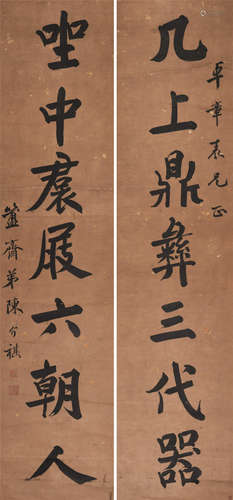 卓章表兄正
几上鼎彝三代器
坐中裠屐六朝人
簠齋弟陳介祺